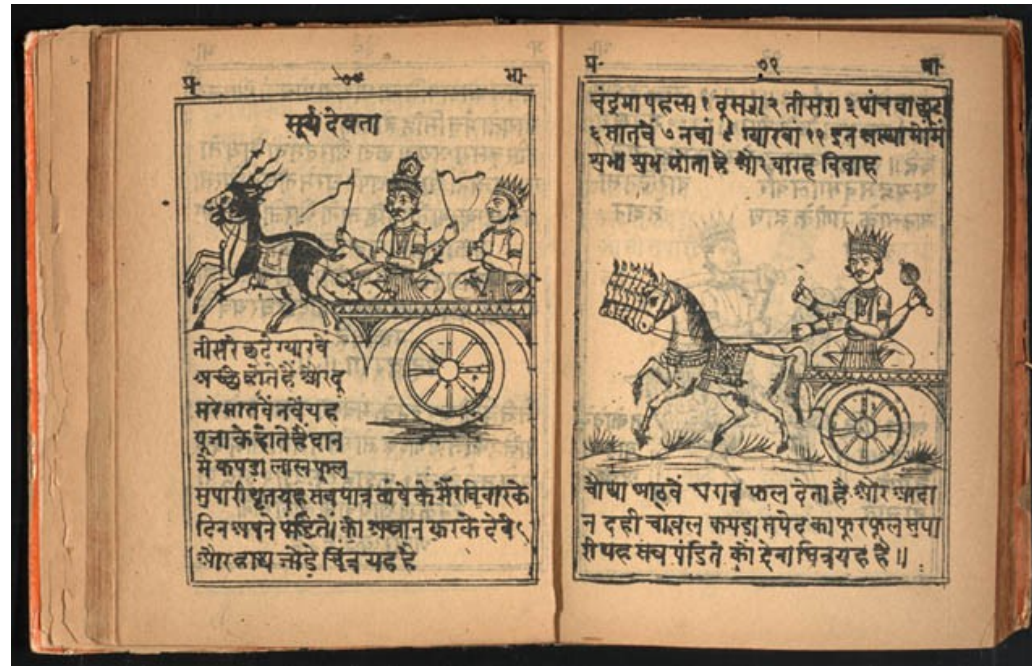 प्र॰ ७० भा॰
सूर्य देवता
तीसरे छटे ग्यारवें
अच्छे होते हैं और दू
सरे सातवें नवें यह
पूजा के होते हैं दान
में कपड़ा लाल फूल
सुपारी घृत यह सब पात्र के में रविवार के
दिन अपने पंडित को करके देवे
और हाथ जोड़े चित्र यह है
प्र॰ ७१ भा॰
चंद्रमा पहला १ दूसरा २ तीसरा ३ पांचवा छटा
६ सातवें ७ नवां ९ ग्यारवा ११ इन में
शुभ होता है और बारह विवाह
चौथा आठवें फल देता है और
न दही चावल कपड़ा सपेद फूल सुपा
री यह सब पंडित को देना चित्र यह है॥